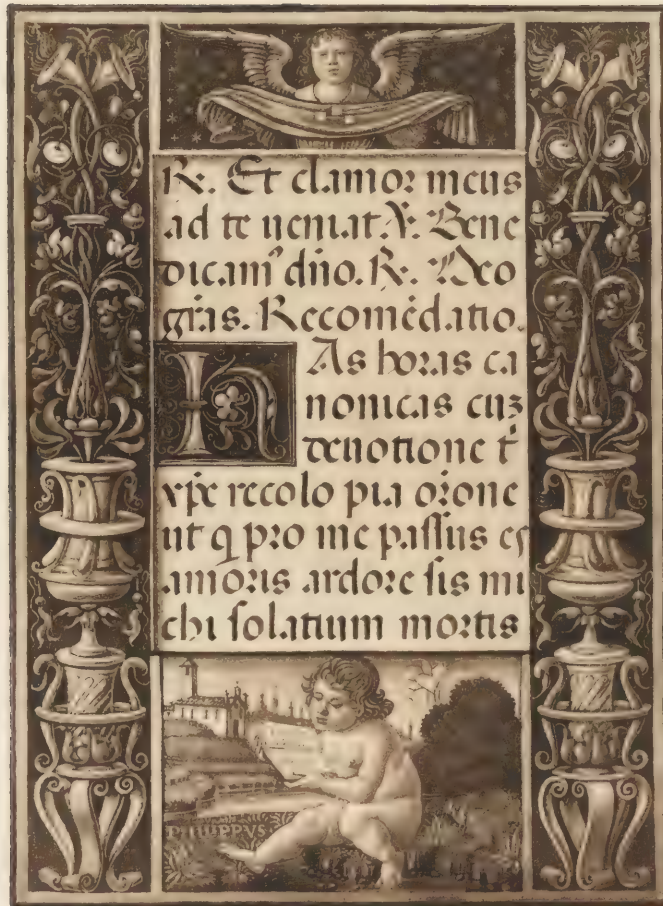 R. Et clamor meus
ad te ueniat. V. Bene
dicam9 dño. R. Deo
gr̃as. Recomẽdatio.
HAs horas ca
nonicas cuz
deuotione t̃
xp̃e recolo pia or̃one
ut q pro me passus es
amoris ardore sis mi
chi solatium mortis
PHILIPPVS